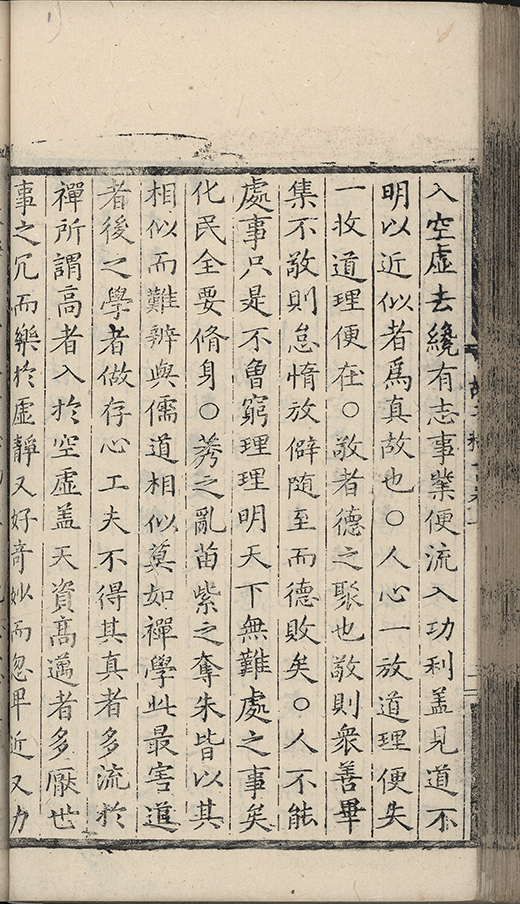 入空虛去纔有志事業便流入功利盖見道不
明以近似者爲真故也○人心一放道理便失
一收道理便在○敬者德之聚也敬則衆善畢
集不敬則怠惰放僻随至而德敗矣○人不能
處事只是不曾窮理理明天下無難處之事矣
化民全要脩身○莠之亂苗紫之奪朱皆以其
相似而難辨與儒道相似莫如禪學此最害道
者後之學者做存心工夫不得其真者多流於
禪所謂高者入於空虛盖天資髙邁者多厭世
事之冗而樂於虛靜又好竒妙而忽卑近又力